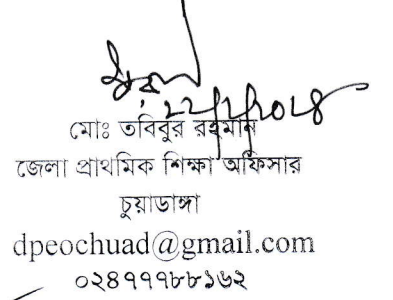 মোঃ তবিবুর রহমান
জেলা প্রাথমিক শিক্ষা অফিসার
চুয়াডাঙ্গা
dpeochuad@gmail.com
০২৪৭৭৭৮৮১৬২